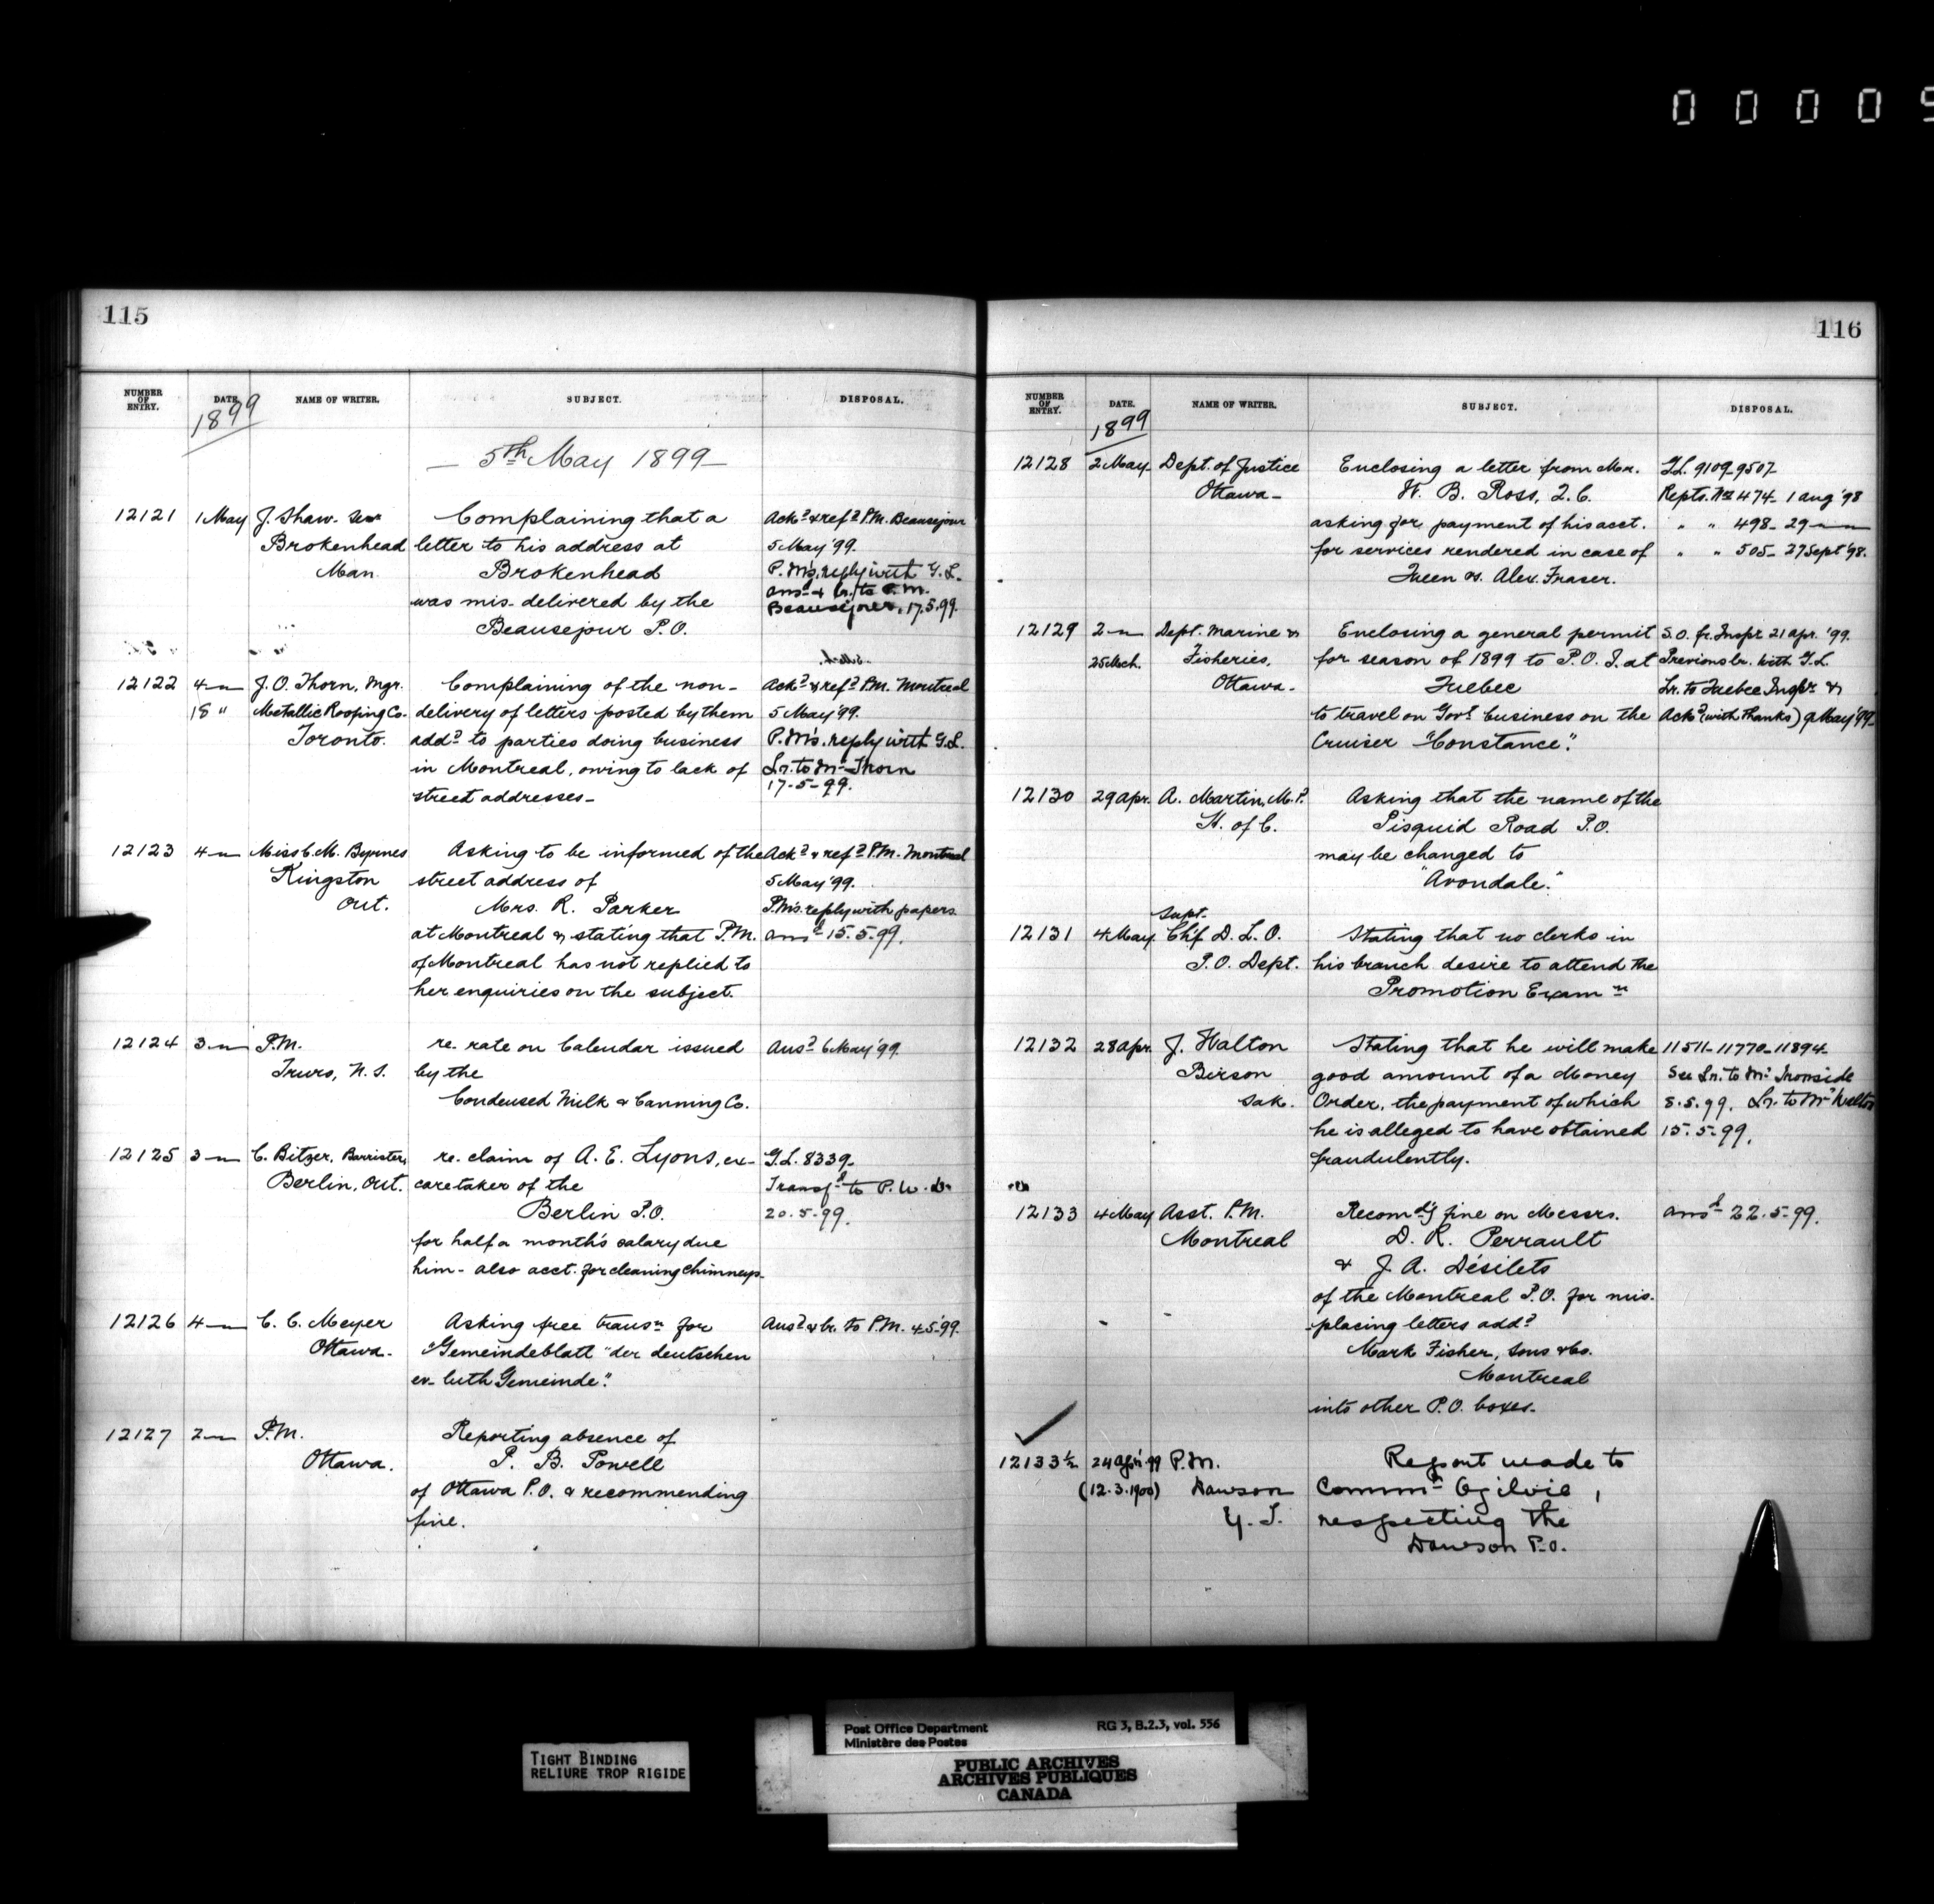 0 0 0 0 5
115
NUMBER OF ENTRY. DATE. NAME OF WRITER. SUBJECT. DISPOSAL.
1899
— 5th May 1899 —
12121 1 May J. Shaw. Complaining that a Ackd & refd P.M. Beausejour
Brokenhead letter to his address at 5 May '99.
Man. Brokenhead P.M's. reply with G.L.
was mis-delivered by the ansd & lr. to P.M.
Beausejour P.O. Beausejour, 17.5.99.
12122 4 — J. O. Thorn, Mgr. Complaining of the non- Ackd & refd P.M. Montreal
18 " Metallic Roofing Co. delivery of letters posted by them 5 May '99.
Toronto. addd to parties doing business P.M's. reply with G.L.
in Montreal, owing to lack of Lr. to Mr Thorn
street addresses— 17-5-99.
12123 4 — Miss C. M. Byrnes Asking to be informed of the Ackd & refd P.M. Montreal
Kingston street address of 5 May '99.
Ont. Mrs. R. Parker P.M's. reply with papers.
at Montreal & stating that P.M. ansd 15.5.99.
of Montreal has not replied to
her enquiries on the subject.
12124 3 — P.M. re. rate on Calendar issued Ansd 6 May '99.
Truro, N.S. by the
Condensed Milk & Canning Co.
12125 3 — C. Bitzer, Barrister, re. claim of A. E. Lyons, ex- G.L. 8339—
Berlin, Ont. caretaker of the Transfd to P.W.D.
Berlin P.O. 20.5.99.
for half a month's salary due
him - also acct. for cleaning chimneys—
12126 4 — C. C. Meyer Asking free transn for Ansd & lr. to P.M. 4.5.99.
Ottawa— "Gemeindeblatt "der deutschen
ev- luth Gemeinde".
12127 2 — P.M. Reporting absence of
Ottawa. P. B. Powell
of Ottawa P.O. & recommending
fine.
116
NUMBER OF ENTRY. DATE. NAME OF WRITER. SUBJECT. DISPOSAL.
1899
12128 2 May Dept. of Justice Enclosing a letter from Mr. G.L. 9109-9507-
Ottawa— W. B. Ross, Q.C. Repts. Nos 474- 1 Aug '98
asking for payment of his acct. " " 498- 29 —
for services rendered in case of " " 505- 27 Sept '98.
Queen vs. Alex. Fraser.
12129 2 — Dept. Marine & Enclosing a general permit S.O. fr. Inspr 21 Apr. '99.
25 Mch. Fisheries, for season of 1899 to P.O.I. at Previous lr. with G.L.
Ottawa— Quebec Lr. to Quebec Inspr &
to travel on Govt business on the Ackd (with thanks) 9 May '99—
Cruiser "Constance".
12130 29 Apr. A. Martin, M.P. Asking that the name of the
H. of C. Pisquid Road P.O.
may be changed to
"Avondale."
Supt.
12131 4 May Chf D. L. O. Stating that no clerks in
P.O. Dept. his branch desire to attend the
Promotion Examn
12132 28 Apr. J. Walton Stating that he will make 11511-11770-11894-
Birson good amount of a Money See Lr. to Mr Ironside
Sask. Order, the payment of which 8.5.99. Lr. to Mr Walton
he is alleged to have obtained 15.5.99.
fraudulently.
12133 4 May Asst. P.M. Recomdg fine on Messrs. ansd 22.5.99.
Montreal D. R. Perrault
& J. A. Désilets
of the Montreal P.O. for mis-
-placing letters addd
Mark Fisher, Sons & Co.
Montreal
into other P.O. boxes—
12133½ 24 Apr. 99 P.M. Report made to
(12.3.1900) Dawson Commr Ogilvie,
Y.T. respecting the
Dawson P.O.
TIGHT BINDING
RELIURE TROP RIGIDE
Post Office Department RG 3, B.2.3, vol. 556
Ministère des Postes
PUBLIC ARCHIVES
ARCHIVES PUBLIQUES
CANADA